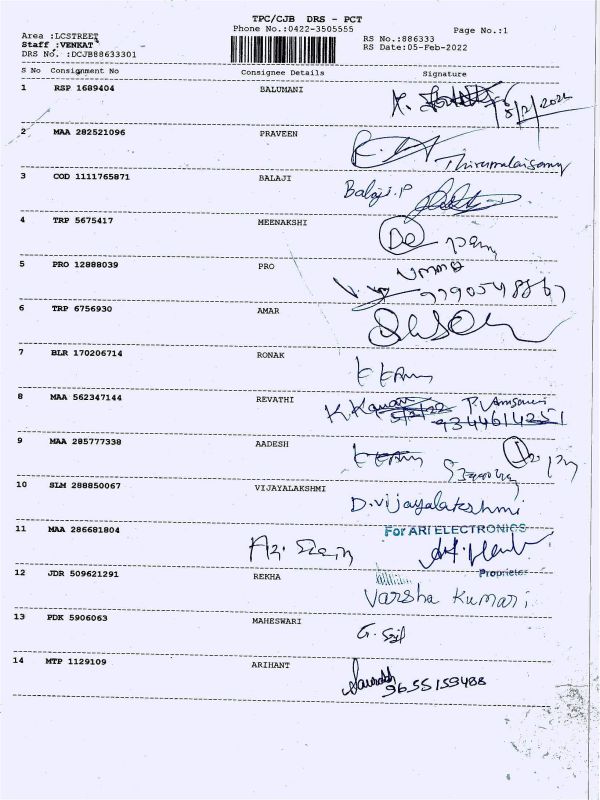 TPC/CJB DRS - PCT
Phone No.:0422-3505555
Page No.:1
Area :LCSTREET
Staff :VENKAT
DRS No. :DCJB88633301
RS No.:886333
RS Date:05-Feb-2022
S No Consignment No Consignee Details Signature
1 RSP 1689404 BALUMANI
5/2/2022
2 MAA 282521096 PRAVEEN
Thirumalaisamy
3 COD 1111765871 BALAJI Balaji.P
4 TRP 5675417 MEENAKSHI
5 PRO 12888039 PRO
Umma
9790548867
6 TRP 6756930 AMAR
7 BLR 170206714 RONAK
8 MAA 562347144 REVATHI
5/2/22
9344614251
9 MAA 285777338 AADESH
10 SLM 288850067 VIJAYALAKSHMI
D.Vijayalakshmi
11 MAA 286681804 For ARI ELECTRONICS
Proprietor
12 JDR 509621291 REKHA
Varsha Kumari
13 PDK 5906063 MAHESWARI
14 MTP 1129109 ARIHANT
9655159488